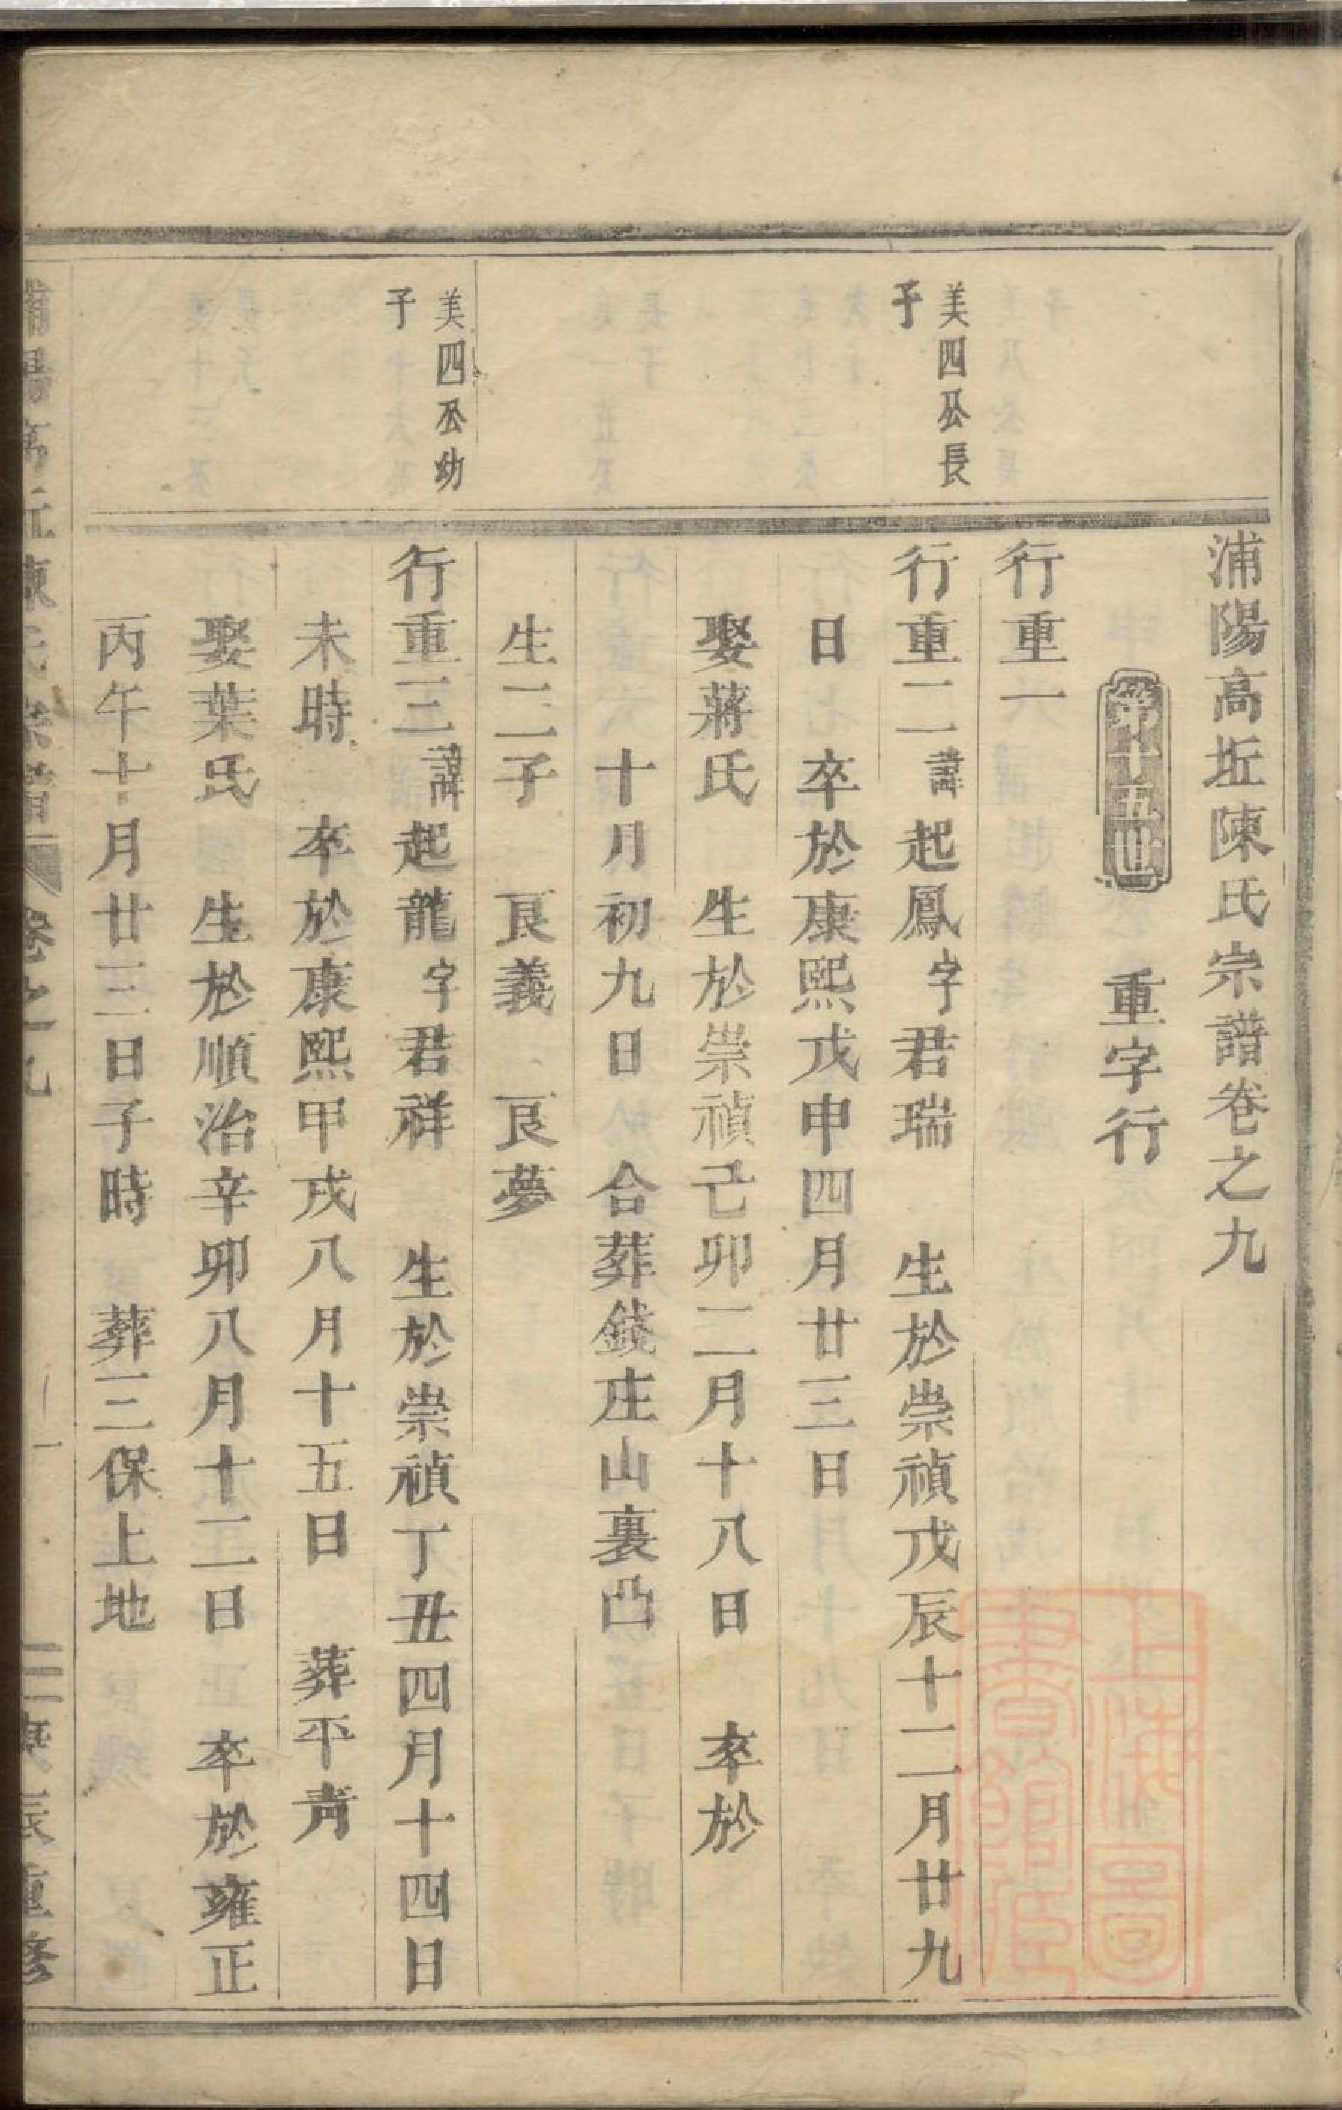 浦陽高坵陳氏宗譜卷之九
第十五世 重字行
行重一
美四公長
子
行重二諱起鳳字君瑞 生於崇禎戊辰十二月廿九
日 卒於康熙戊申四月廿三日
娶蔣氏 生於崇禎己卯二月十八日 卒於
十月初九日 合葬錢庄山裏凸
生二子 艮義 艮夢
美四公幼
子
行重三諱起龍字君祥 生於崇禎丁丑四月十四日
未時 卒於康熙甲戌八月十五日 葬平青
娶葉氏 生於順治辛卯八月十二日 卒於雍正
丙午十月廿三日子時 葬三保上地
浦陽高坵陳氏宗譜 卷之九 一 庚辰重修
上海圖書館藏